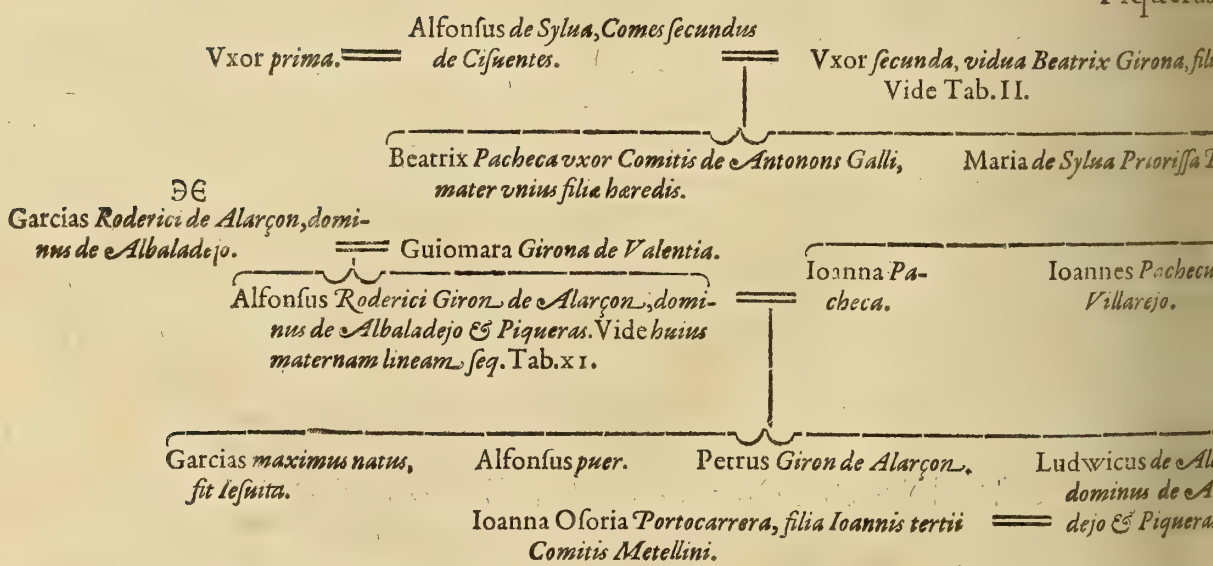 Piqueras
Alfonſus de Sylua, Comes ſecundus
de Cifuentes.
Vxor prima.
Vxor ſecunda, vidua Beatrix Girona,
Vide Tab. II.
Beatrix Pacheca vxor Comitis de Antonons Galli,
mater vnius filiæ hæredis.
Maria de Sylua Prioriſſa
Garcias Roderici de Alarçon, domi-
nus de Albaladejo.
Guiomara Girona de Valentia.
Alfonſus Roderici Giron de Alarçon, domi-
nus de Albaladejo & Piqueras. Vide huius
maternam lineam ſeq. Tab. XI.
Ioanna Pa-
checa.
Ioannes
Villarejo.
Garcias maximus natus,
fit Ieſuita.
Alfonſus puer.
Petrus Giron de Alarçon.
Ludwicus de
dominus de
dejo & Piqueras
Ioanna Oſoria Portocarrera, filia Ioannis tertii
Comitis Metellini.